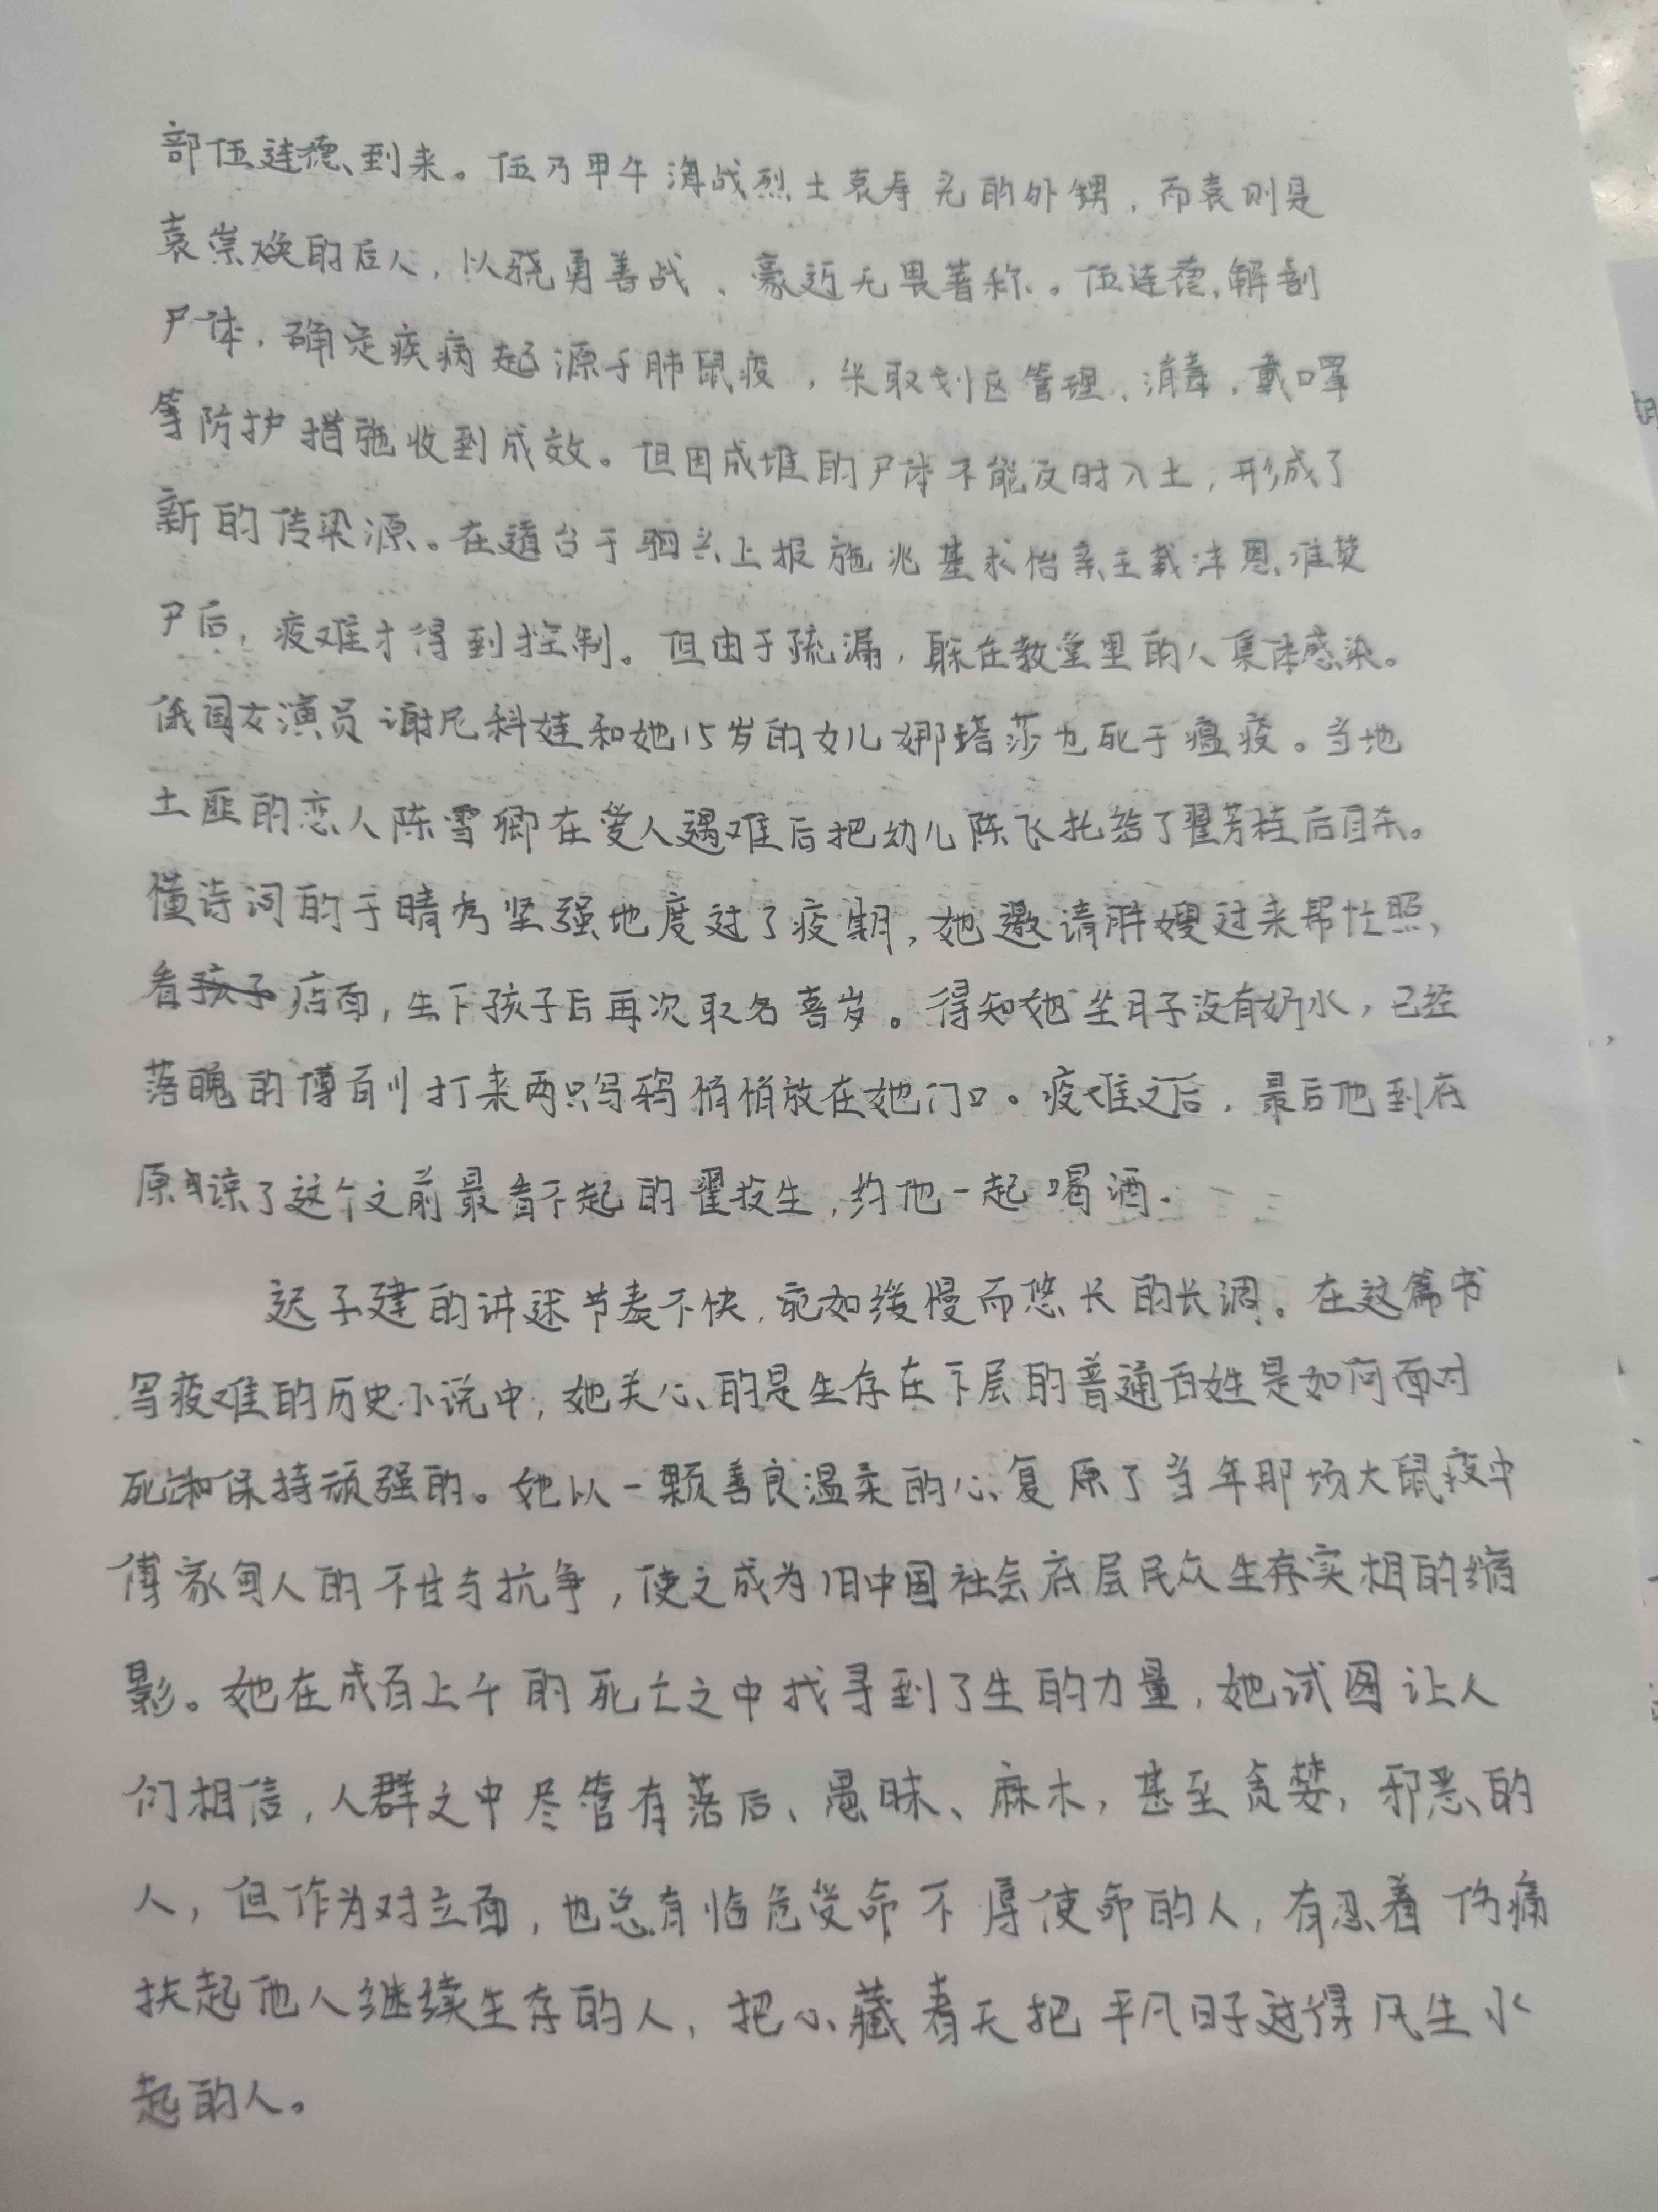 部伍连德到来。伍乃甲午海战烈士袁寿元的外甥，而袁则是
袁崇焕的后人，以骁勇善战、豪迈无畏著称。伍连德解剖
尸体，确定疾病起源于肺鼠疫，采取划区管理、消毒、戴口罩
等防护措施收到成效。但因成堆的尸体不能及时入土，形成了
新的传染源。在道台于驷兴上报施兆基求怡亲王载沣恩准焚
尸后，疫难才得到控制。但由于疏漏，躲在教堂里的人集体感染。
俄国女演员谢尼科娃和她15岁的女儿娜塔莎也死于瘟疫。当地
土匪的恋人陈雪卿在爱人遇难后把幼儿陈飞托给了翟芳桂后自杀。
懂诗词的于晴秀坚强地度过了疫期，她邀请胖嫂过来帮忙照
看店面，生下孩子后再次取名喜岁。得知她坐月子没有奶水，已经
落魄的傅百川打来两只乌鸦悄悄放在她门口。疫难之后，最后他到底
原谅了这个之前最看不起的翟役生，约他一起喝酒。
迟子建的讲述节奏不快，宛如缓慢而悠长的长调。在这篇书
写疫难的历史小说中，她关心的是生存在下层的普通百姓是如何面对
死亡和保持顽强的。她以一颗善良温柔的心复原了当年那场大鼠疫中
傅家甸人的不甘与抗争，使之成为旧中国社会底层民众生存实相的缩
影。她在成百上千的死亡之中找寻到了生的力量，她试图让人
们相信，人群之中尽管有落后、愚昧、麻木，甚至贪婪，邪恶的
人，但作为对立面，也总有临危受命不辱使命的人，有忍着伤痛
扶起他人继续生存的人，把心藏春天把平凡日子过得风生水
起的人。